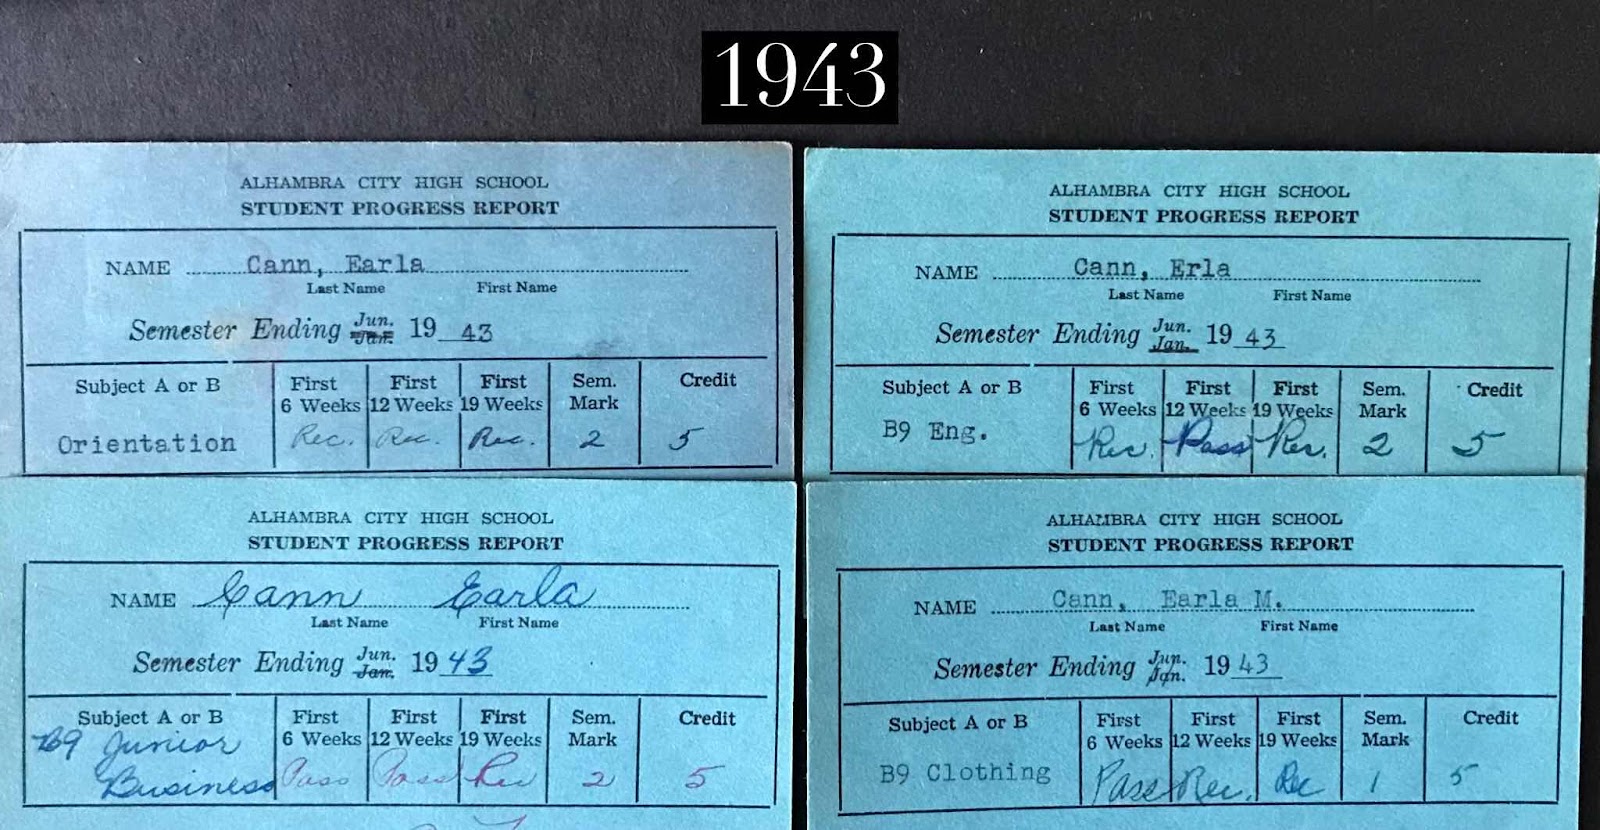 1943
ALHAMBRA CITY HIGH SCHOOL
STUDENT PROGRESS REPORT
NAME Cann, Earla
Last Name First Name
Semester Ending Jun. Jan. 19 43
Subject A or B First 6 Weeks First 12 Weeks First 19 Weeks Sem. Mark Credit
Orientation Rec. Rec. Rec. 2 5
ALHAMBRA CITY HIGH SCHOOL
STUDENT PROGRESS REPORT
NAME Cann, Erla
Last Name First Name
Semester Ending Jun. Jan. 19 43
Subject A or B First 6 Weeks First 12 Weeks First 19 Weeks Sem. Mark Credit
B9 Eng. Rec. Pass Rec. 2 5
ALHAMBRA CITY HIGH SCHOOL
STUDENT PROGRESS REPORT
NAME Cann Earla
Last Name First Name
Semester Ending Jun. Jan. 19 43
Subject A or B First 6 Weeks First 12 Weeks First 19 Weeks Sem. Mark Credit
B9 Junior
Business Pass Pass Rec 2 5
ALHAMBRA CITY HIGH SCHOOL
STUDENT PROGRESS REPORT
NAME Cann, Earla M.
Last Name First Name
Semester Ending Jun. Jan. 19 43
Subject A or B First 6 Weeks First 12 Weeks First 19 Weeks Sem. Mark Credit
B9 Clothing Pass Rec. Rec 1 5